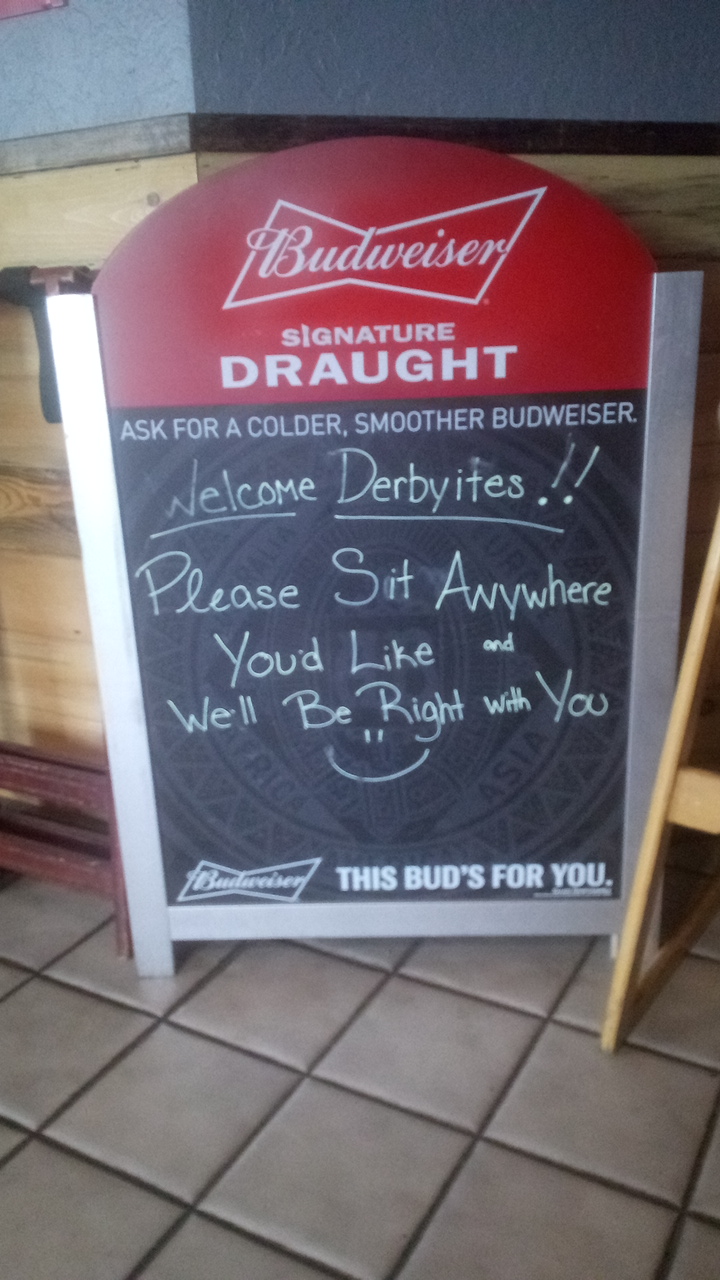 Budweiser
SIGNATURE
DRAUGHT
ASK FOR A COLDER, SMOOTHER BUDWEISER.
Welcome Derbyites!!
Please Sit Anywhere
You'd Like and
We'll Be Right with You
ASIA
Budweiser THIS BUD'S FOR YOU.